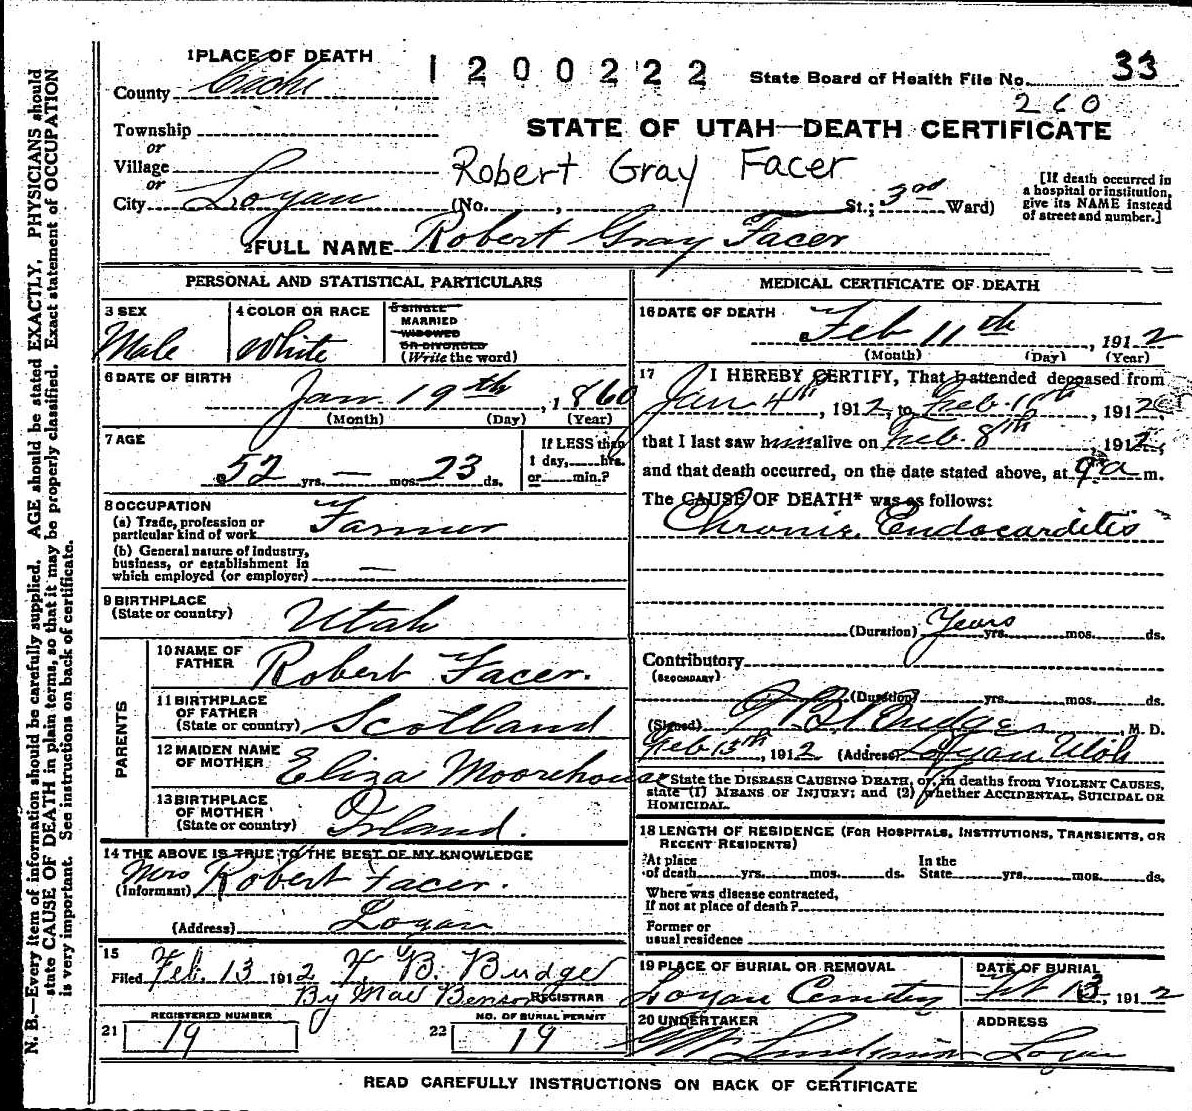 1 PLACE OF DEATH
1 200222
State Board of Health File No. 33
260
County Cache
Township
or
Village
or
City Logan
STATE OF UTAH—DEATH CERTIFICATE
Robert Gray Facer
(No. , St.; 3rd Ward)
[If death occurred in
a hospital or institution,
give its NAME instead
of street and number.]
2 FULL NAME Robert Gray Facer
PERSONAL AND STATISTICAL PARTICULARS
3 SEX
Male
4 COLOR OR RACE
White
5 SINGLE
MARRIED
WIDOWED
OR DIVORCED
(Write the word)
6 DATE OF BIRTH
Jan 19th, 1860
(Month) (Day) (Year)
7 AGE
52 yrs. — mos. 23 ds.
If LESS than
1 day, hrs.
or min.?
8 OCCUPATION
(a) Trade, profession or
particular kind of work Farmer
(b) General nature of Industry,
business, or establishment in
which employed (or employer) —
9 BIRTHPLACE
(State or country) Utah
PARENTS
10 NAME OF
FATHER Robert Facer.
11 BIRTHPLACE
OF FATHER
(State or country) Scotland
12 MAIDEN NAME
OF MOTHER Eliza Moorehouse
13 BIRTHPLACE
OF MOTHER
(State or country) Irland.
14 THE ABOVE IS TRUE TO THE BEST OF MY KNOWLEDGE
(Informant) Mrs Robert Facer.
(Address) Logan
15
Filed Feb. 13 1912 T. B. Budge
By Mae Benson REGISTRAR
21 REGISTERED NUMBER
19
22 NO. OF BURIAL PERMIT
19
MEDICAL CERTIFICATE OF DEATH
16 DATE OF DEATH Feb 11th, 1912
(Month) (Day) (Year)
17 I HEREBY CERTIFY, That I attended deceased from
Jan 4th, 1912, to Feb. , 1912,
that I last saw him alive on Feb. 8th, 1912,
and that death occurred, on the date stated above, at 9 a m.
The CAUSE OF DEATH* was as follows:
Chronic Endocarditis
(Duration) Years yrs. mos. ds.
Contributory
(SECONDARY)
(Duration) yrs. mos. ds.
(Signed) Budge M. D.
Feb 13th, 1912 (Address) Logan Utah
* State the DISEASE CAUSING DEATH, or, in deaths from VIOLENT CAUSES,
state (1) MEANS OF INJURY; and (2) whether ACCIDENTAL, SUICIDAL OR
HOMICIDAL.
18 LENGTH OF RESIDENCE (FOR HOSPITALS, INSTITUTIONS, TRANSIENTS, OR
RECENT RESIDENTS)
At place
of death yrs. mos. ds.
In the
State yrs. mos. ds.
Where was disease contracted,
If not at place of death?
Former or
usual residence
19 PLACE OF BURIAL OR REMOVAL
Logan Cemetery
DATE OF BURIAL
Feb 13, 1912
20 UNDERTAKER
ADDRESS
Logan
READ CAREFULLY INSTRUCTIONS ON BACK OF CERTIFICATE
N. B.—Every item of information should be carefully supplied. AGE should be stated EXACTLY. PHYSICIANS should
state CAUSE OF DEATH in plain terms, so that it may be properly classified. Exact statement of OCCUPATION
is very important. See instructions on back of certificate.